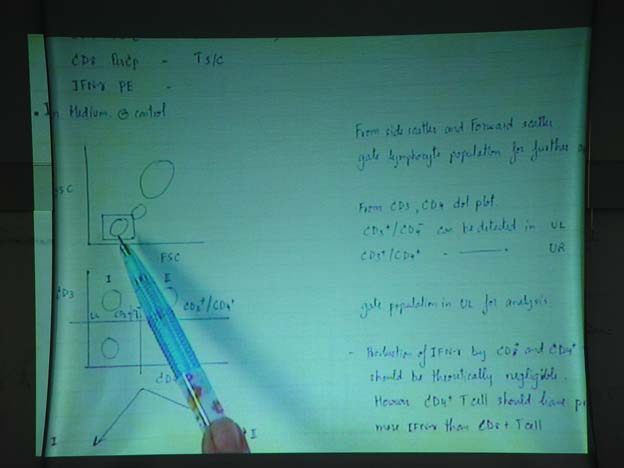 CD3 PerCp - TS/C
IFN-γ PE -
• In Medium ⊖ control
SSC
FSC
CD3
I
II
UL
CD3⁺/CD4⁺
I
II
From side scatter and Forward scatter
gate lymphocyte population for further
From CD3, CD4 dot plot.
CD3⁺/CD4⁻ can be detected in UL
CD3⁺/CD4⁺ - ———— UR
gate population in UL for analysis
- Production of IFN-γ by CD8⁺ and CD4⁺
should be theoretically negligible.
However CD4⁺ T cell should have
more IFN-γ than CD8+ T cell